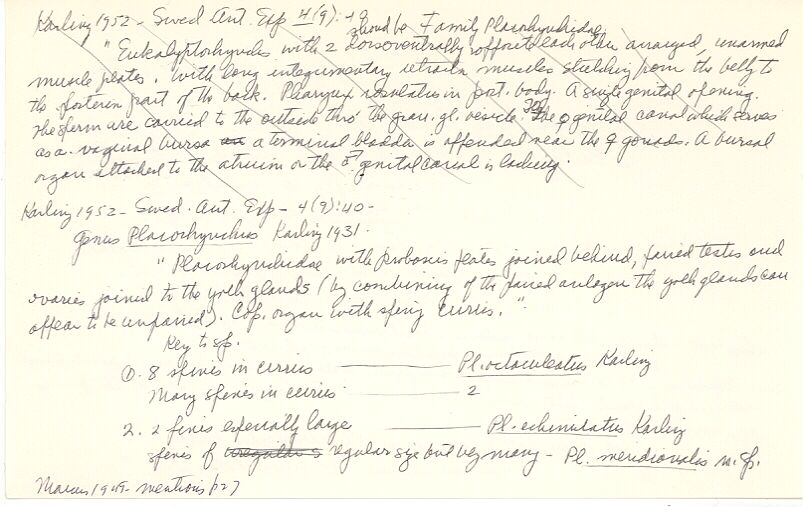 Karling 1952 - Swed. Ant. Exp 4(9): 
should be Family Placorhynchidae
"Eukalyptorhynchs with 2 dorsoventrally opposite each other arranged, unarmed
muscle plates. With long integumentary retrain muscles stretching from the belly to
the posterior part of the back. Pharynx rosulatus in post. body. A single genital opening.
The sperm are carried to the outside thro' the gran. gl. vesicle. The ♀ genital canal which serves
as a vaginal bursa a terminal bladder is appended near the ♀ gonads. A bursal
organ attached to the atrium or the ♂ genital canal is lacking.
Karling 1952 - Swed. Ant. Exp - 4(9):40 -
Genus Placorhynchus Karling 1931.
"Placorhynchidae with proboscis plates joined behind, paired testes and
ovaries joined to the yolk glands (by combining of the paired anlagen the yolk glands can
appear to be unpaired). Cop. organ with spiny cirrus."
Key to sp.
1. 8 spines in cirrus — Pl. octaculeatus Karling
Many spines in cirrus — 2
2. 2 spines especially large — Pl. echinulatus Karling
spines of regular size but very many - Pl. meridionalis n. sp.
Marcus 1949 - mentions p27